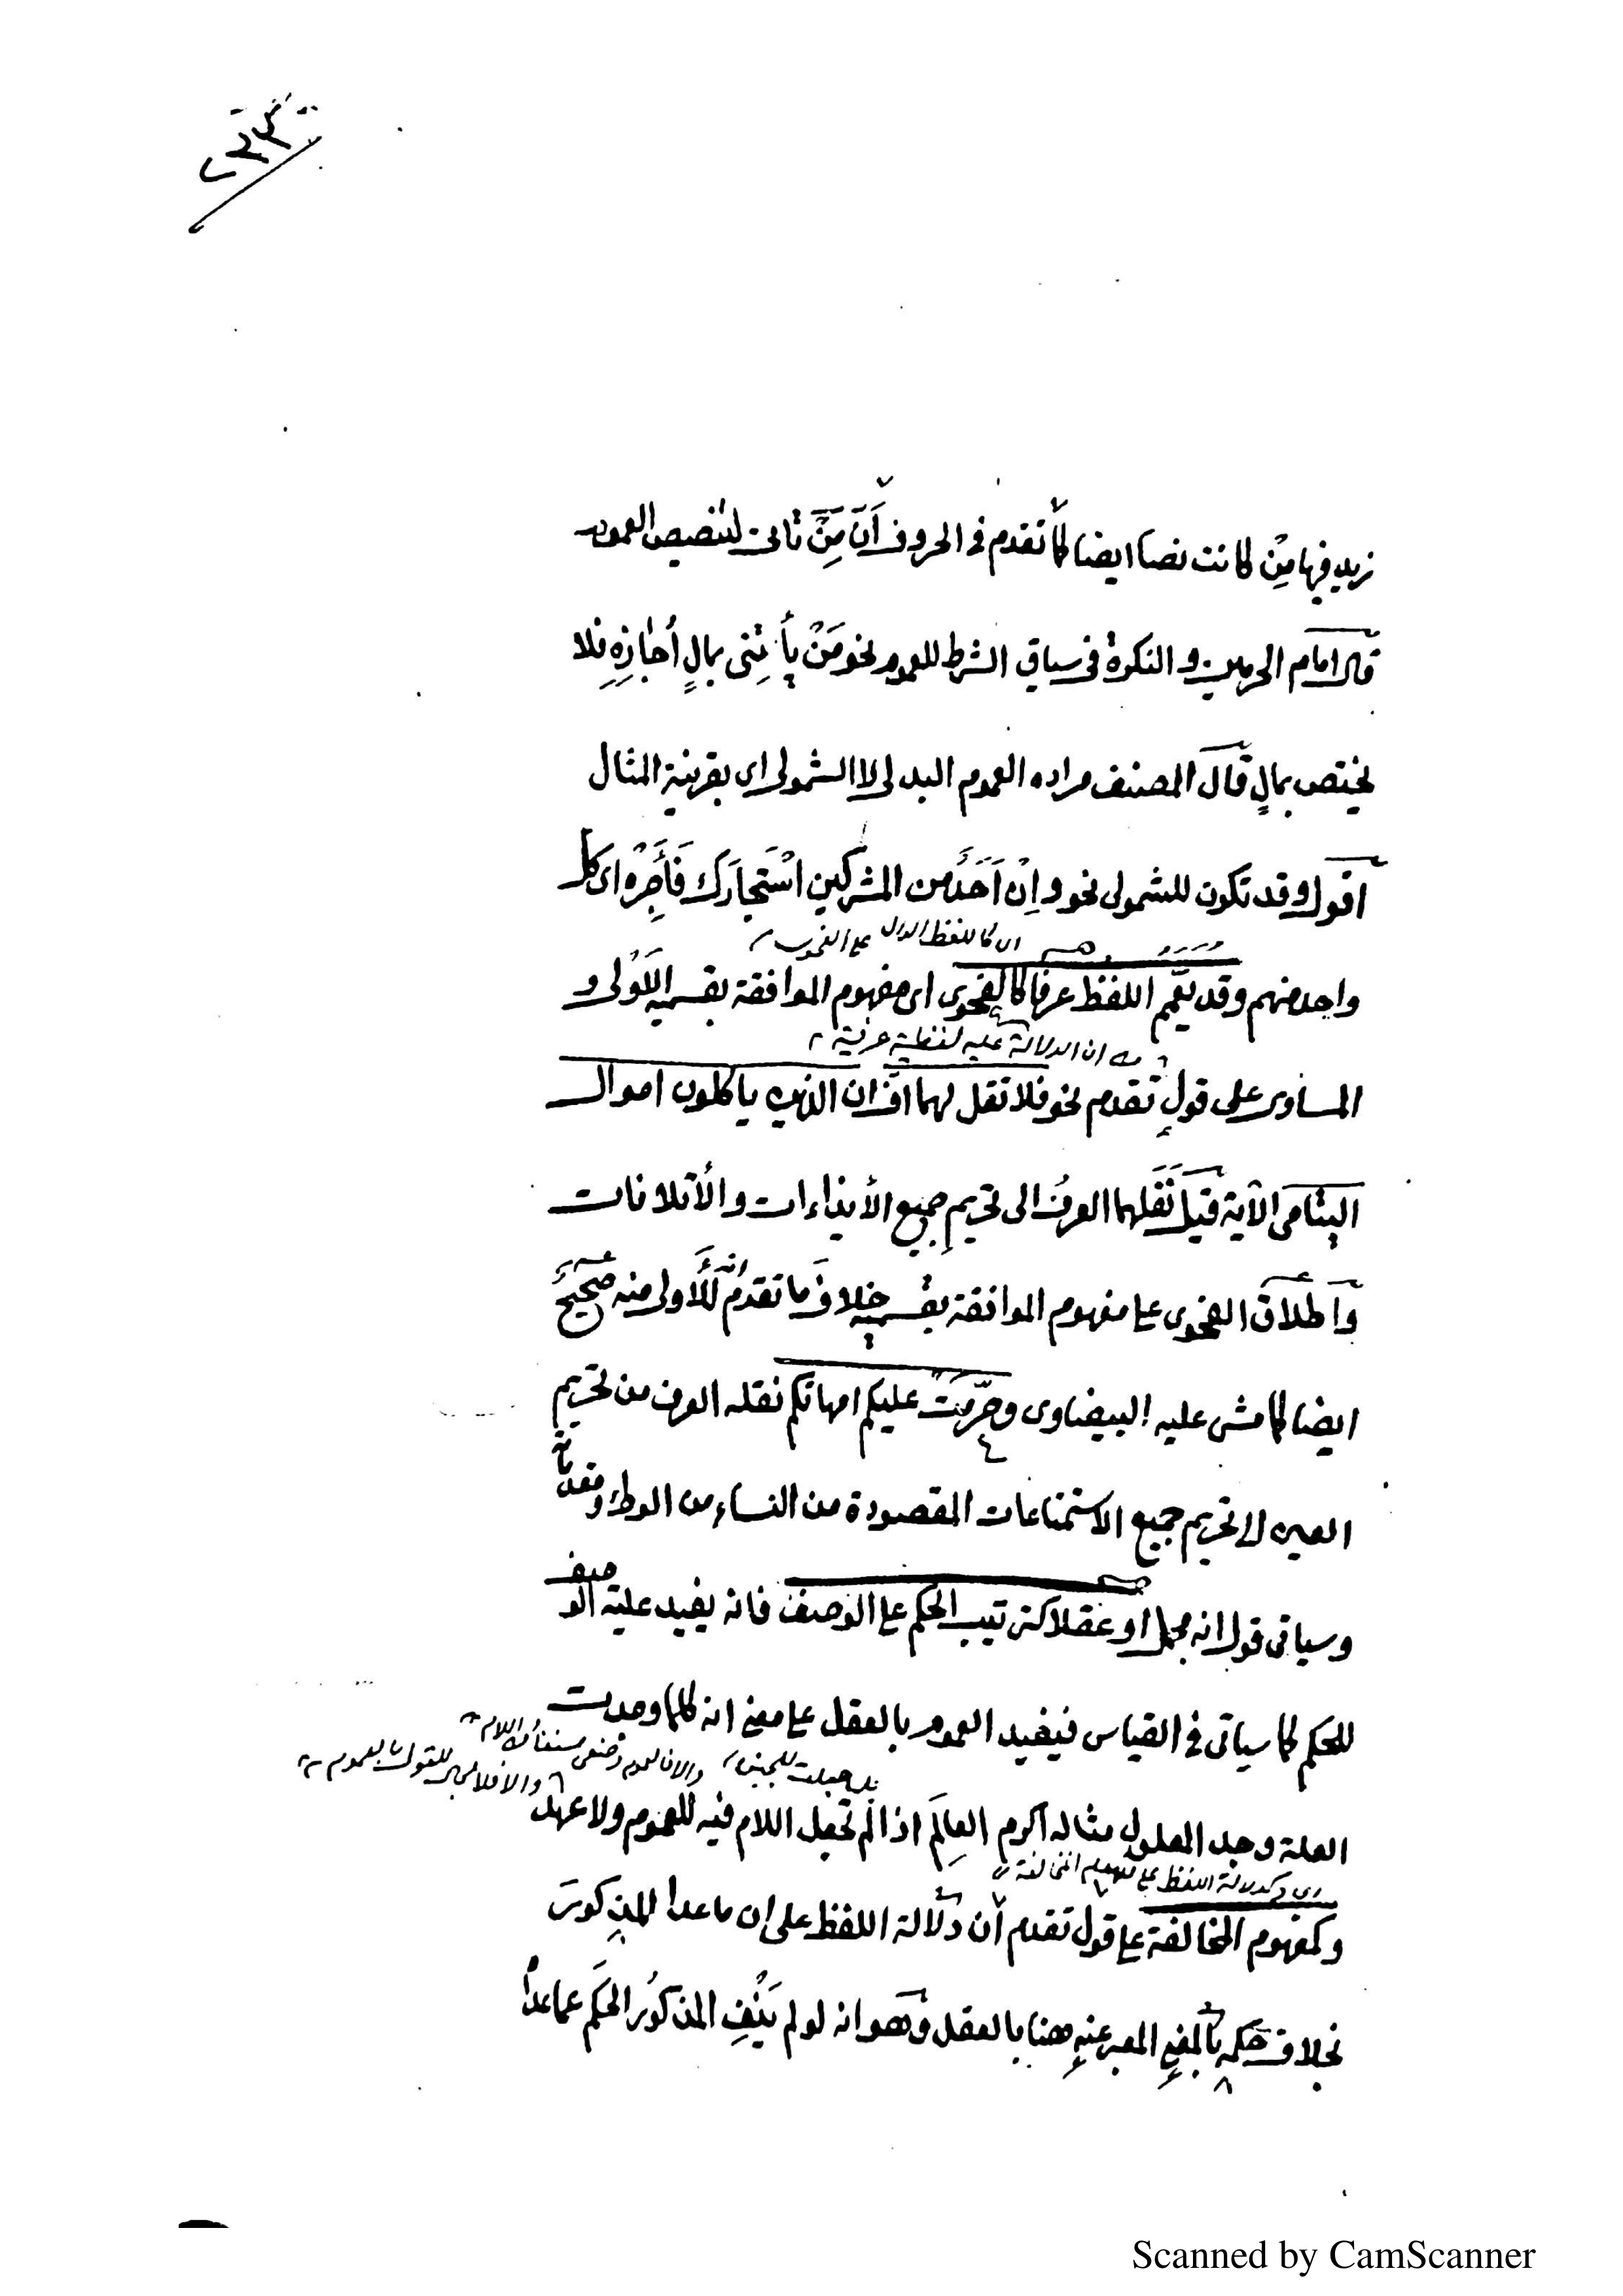 زيد فيها مِن كانت نصا ايضا كما تقدم في الحروف أَنّ مِنْ تأتى لتنصيص العموم
قال امام الحرمين و النكرة فى سياق الشرط للعموم نحو مَنْ يأتِنى بمالٍ أُجازِهِ فلا
يختص بمالٍ قال المصنف مراده العموم البدلى لا الشمولى اى بقرينة المثال
اقول وقد تكون للشمولى نحو واِنْ اَحَدٌ من المشركين اسْتَجارَكَ فَأَجِرْهُ اى كل
اى كاللفظ الدال على الفحوى
واحد منهم وقد يعمّم اللفظ عرفا كالفحوى اى مفهوم الموافقة بقسميه الأَوْلى و
ان الدلالة عليه لفظية عرفية
المساوى على قولٍ تقدم نحو فلا تقل لهما افّ ان الذين ياكلون اموال
اليتامى الآية قيل نَقَلَهما العرفُ الى تحريمِ جميع الأيذاءات والأتلافات
وأطلاق الفحوى على مفهوم الموافقة بقسميه خلافَ ما تقدم أنه لِلأَولى منه صحيحٌ
ايضا كما مشى عليه البيضاوى وحُرِّمَتْ عليكم امهاتكم نقله العرف من تحريم
العين الى تحريم جميع الاستمتاعات المقصودة من النساء من الوطء ومقدماته
وسياتى قول انه مجمل او عقلا كترتيب الحكم على الوصف فانه يفيد علية الوصف
للحكم كما سياتى في القياس فيفيد العموم بالعقل على معنى انه كلما وجدت
بل جعلت للجنس
والا فلا للقول بالعموم
العلة وجد المعلول مثاله اكرم العالِمَ اذا لم تجعل اللام فيه للعموم ولا عهدَ
اى كدلالة اللفظ على مفهوم المخالفة
وكمفهوم المخالفة على قول تقدم أن دلالة اللفظ على ان ماعدا المذكورَ
بخلاف حكمه بالمعنى المعبر عنه هنا بالعقل وهو انه لو لم يَنْفِ المذكورُ الحكمَ عما عداه
Scanned by CamScanner